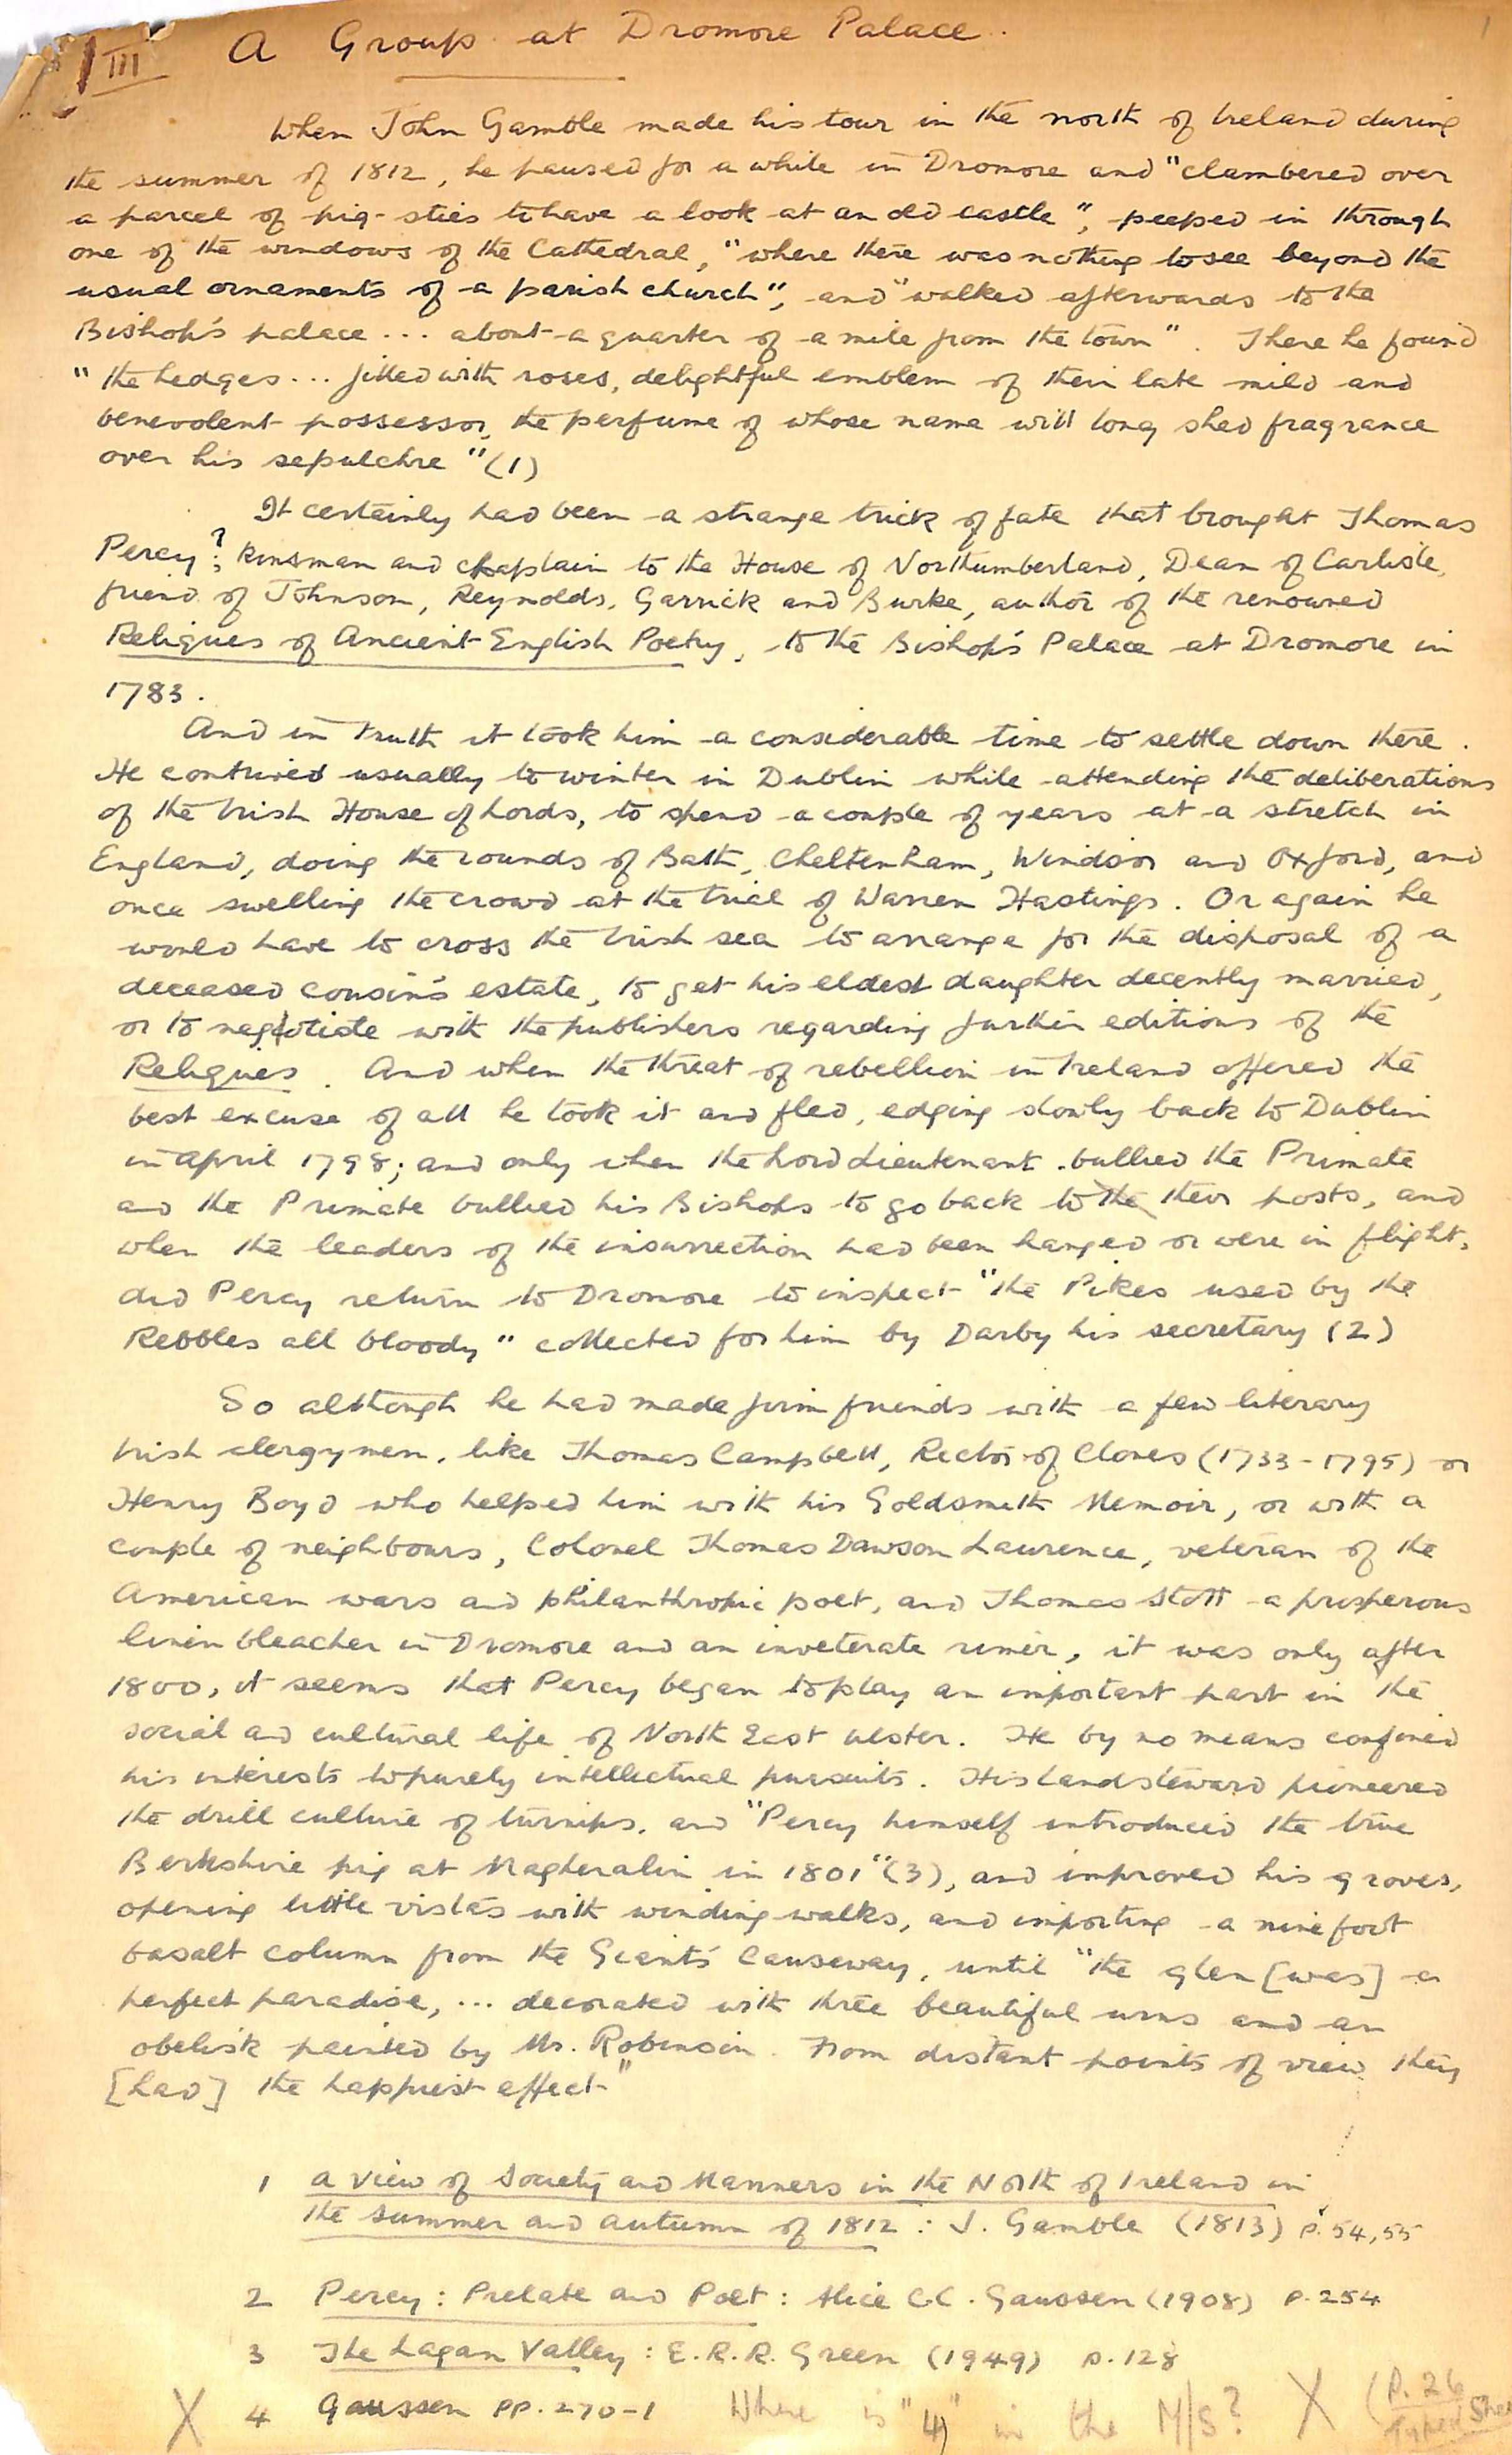 III A Group at Dromore Palace.
1
When John Gamble made his tour in the north of Ireland during
the summer of 1812, he paused for a while in Dromore and "clambered over
a parcel of pig-sties to have a look at an old castle", peeped in through
one of the windows of the Cathedral, "where there was nothing to see beyond the
usual ornaments of a parish church", and "walked afterwards to the
Bishop's palace ... about a quarter of a mile from the town". There he found
"the hedges ... filled with roses, delightful emblem of their late mild and
benevolent possessor, the perfume of whose name will long shed fragrance
over his sepulchre" (1)
It certainly had been a strange trick of fate that brought Thomas
Percy?, kinsman and chaplain to the House of Northumberland, Dean of Carlisle,
friend of Johnson, Reynolds, Garrick and Burke, author of the renowned
Reliques of Ancient English Poetry, to the Bishop's Palace at Dromore in
1783.
And in truth it took him a considerable time to settle down there.
He contrived usually to winter in Dublin while attending the deliberations
of the Irish House of Lords, to spend a couple of years at a stretch in
England, doing the rounds of Bath, Cheltenham, Windsor and Oxford, and
once swelling the crowd at the trial of Warren Hastings. Or again he
would have to cross the Irish sea to arrange for the disposal of a
deceased cousin's estate, to get his eldest daughter decently married,
or to negotiate with the publishers regarding further editions of the
Reliques. And when the threat of rebellion in Ireland offered the
best excuse of all he took it and fled, edging slowly back to Dublin
in April 1798; and only when the Lord Lieutenant bullied the Primate
and the Primate bullied his Bishops to go back to the their posts, and
when the leaders of the insurrection had been hanged or were in flight,
did Percy return to Dromore to inspect "the Pikes used by the
Rebbles all bloody" collected for him by Darby his secretary (2)
So although he had made firm friends with a few literary
Irish clergymen, like Thomas Campbell, Rector of Clones (1733-1795) or
Henry Boyd who helped him with his Goldsmith Memoir, or with a
couple of neighbours, Colonel Thomas Dawson Laurence, veteran of the
American wars and philanthropic poet, and Thomas Stott a prosperous
linen bleacher in Dromore and an inveterate rimer, it was only after
1800, it seems that Percy began to play an important part in the
social and cultural life of North East Ulster. He by no means confined
his interests to purely intellectual pursuits. His land steward pioneered
the drill culture of turnips, and "Percy himself introduced the true
Berkshire pig at Magheralin in 1801" (3), and improved his groves,
opening little vistas with winding walks, and importing a nine foot
basalt column from the Giant's Causeway, until "the glen [was] a
perfect paradise, ... decorated with three beautiful urns and an
obelisk painted by Mr. Robinson. From distant points of view they
[had] the happiest effect"
1 A View of Society and Manners in the North of Ireland in
the summer and autumn of 1812 : J. Gamble (1813) p. 54, 55
2 Percy: Prelate and Poet : Alice C.C. Gaussen (1908) p. 254
3 The Lagan Valley : E.R.R. Green (1949) p. 128
X 4 Gaussen pp. 270-1 Where is "4" in the M/S? X (P. 26
Typed Sheet